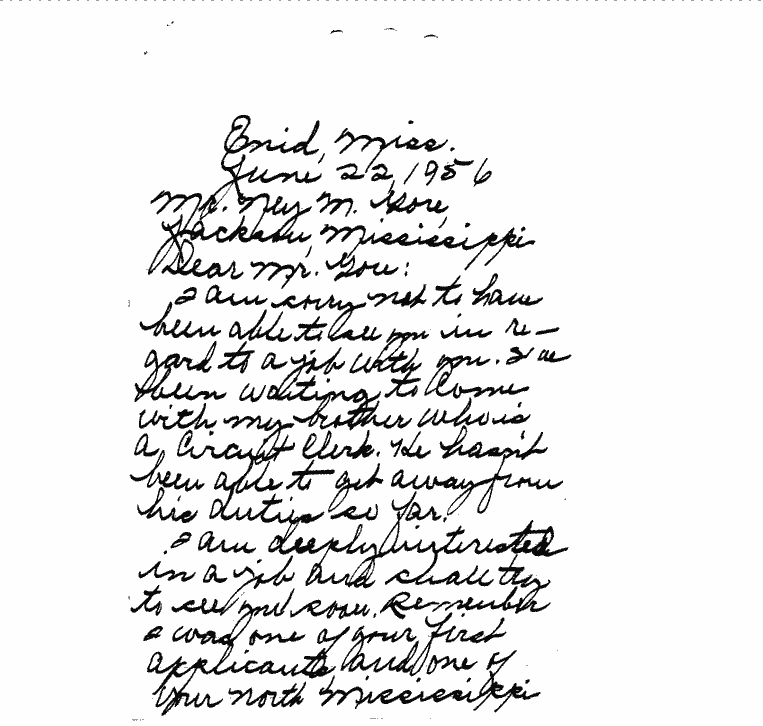 Enid, Miss.
June 22, 1956
Mr. Ney M. Gore,
Jackson, Mississippi
Dear Mr. Gore:
I am sorry not to have
been able to see you in re-
gard to a job with you. I've
been waiting to come
with my brother who is
a Circuit Clerk. He hasn't
been able to get away from
his duties so far.
I am deeply interested
in a job and shall try
to see you soon. Remember
I was one of your first
applicants and one of
your North Mississippi